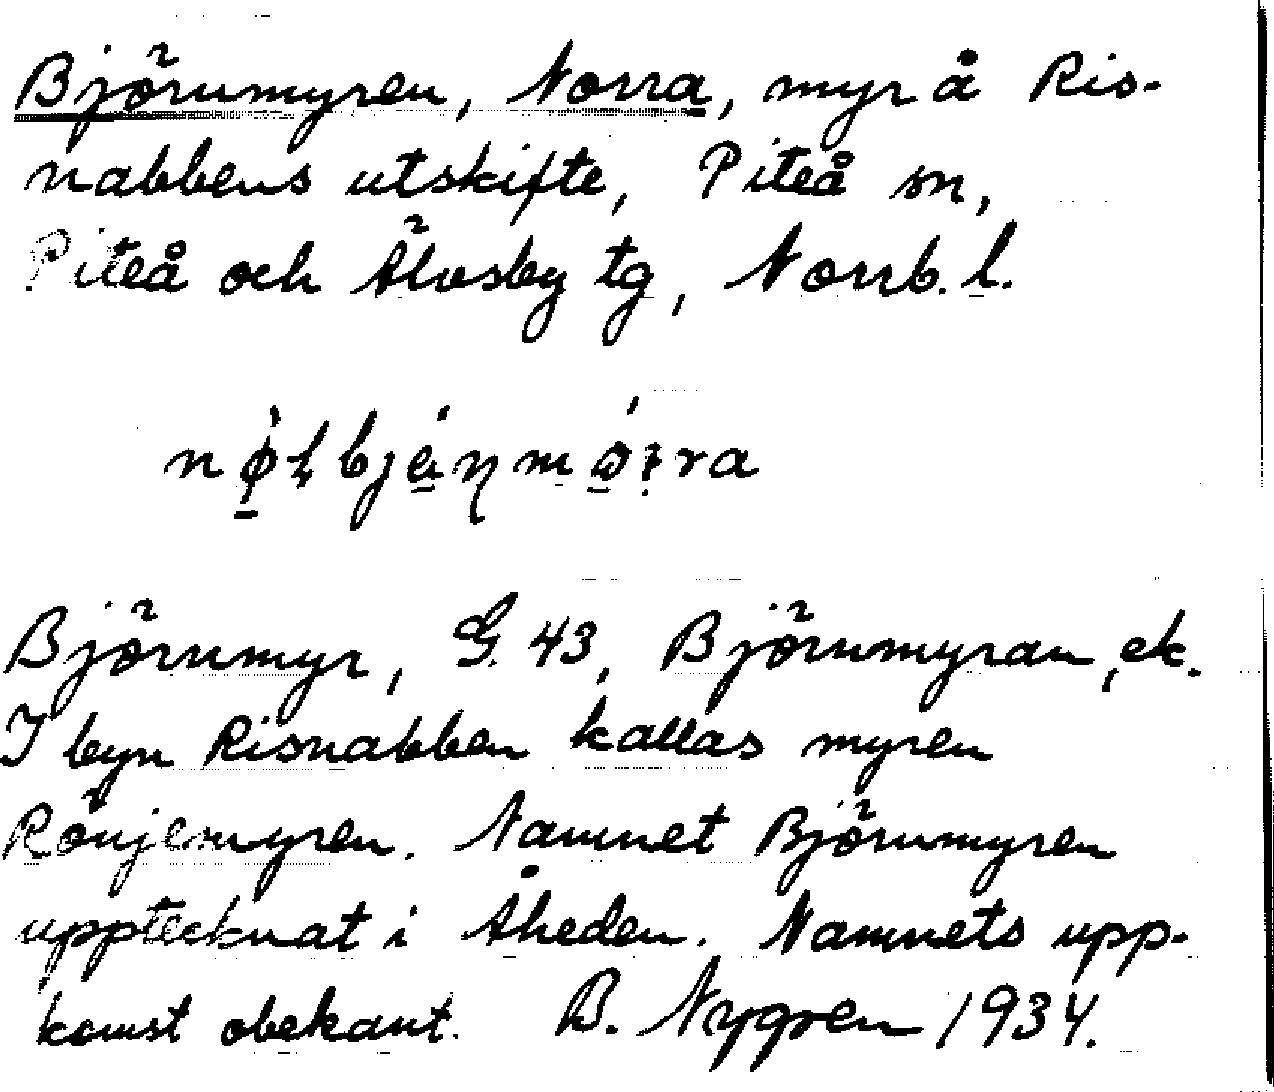 Björnmyren, Norra, myr å Ris-
nabbens utskifte, Piteå sn,
Piteå och Älvsby tg, Norrb. l.
Björnmyr, G. 43, Björnmyran, ek.
I byn Risnabben kallas myren
Rönjemyren. Namnet Björnmyren
upptecknat i Åheden. Namnets upp-
komst obekant. B. Nygren 1934.